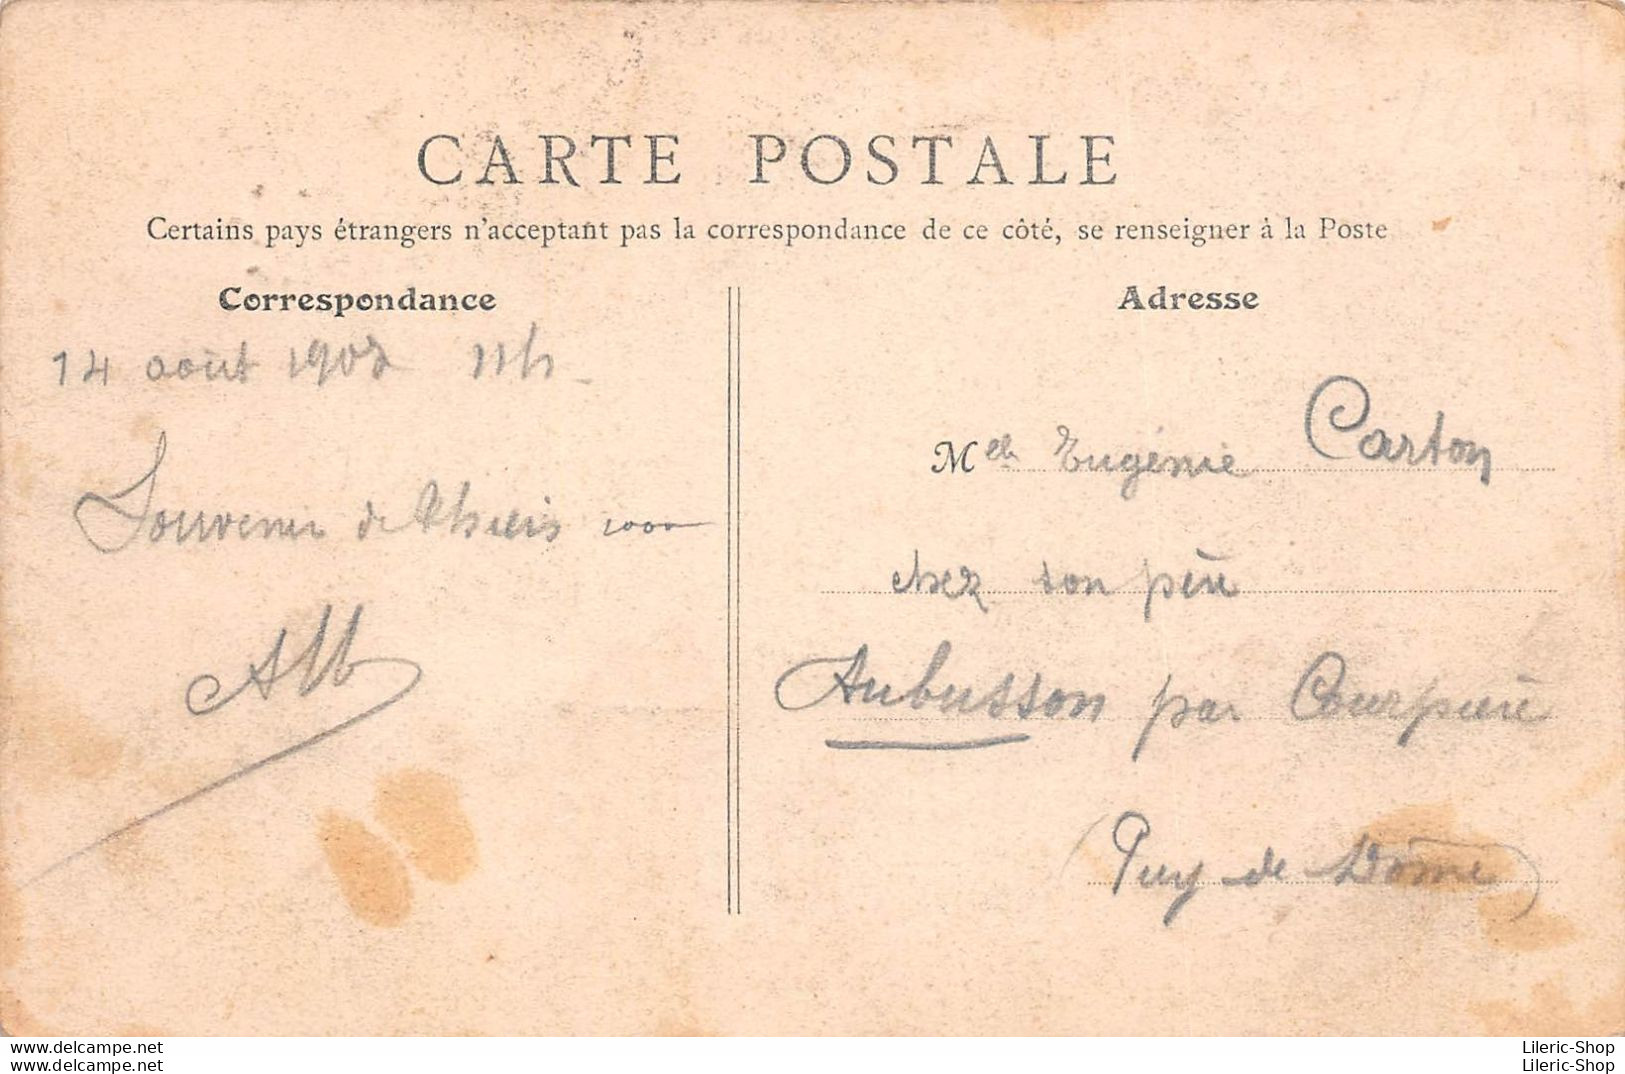 CARTE POSTALE
Certains pays étrangers n'acceptant pas la correspondance de ce côté, se renseigner à la Poste
Correspondance
14 août 1907 11h
Souvenir de
Alb
Adresse
Melle Eugénie Carton
chez son père
Aubusson par Courpière
(Puy de Dôme)
www.delcampe.net
www.delcampe.net
Lileric-Shop
Lileric-Shop